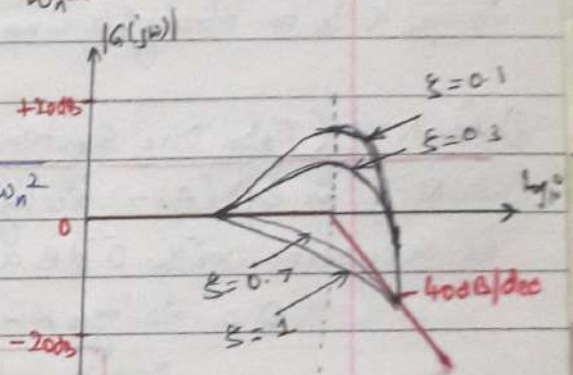 |G(jω)|
+20dB
ξ=0.1
ξ=0.3
ωn²
0
ξ=0.7
-40dB/dec
ξ=1
-20dB